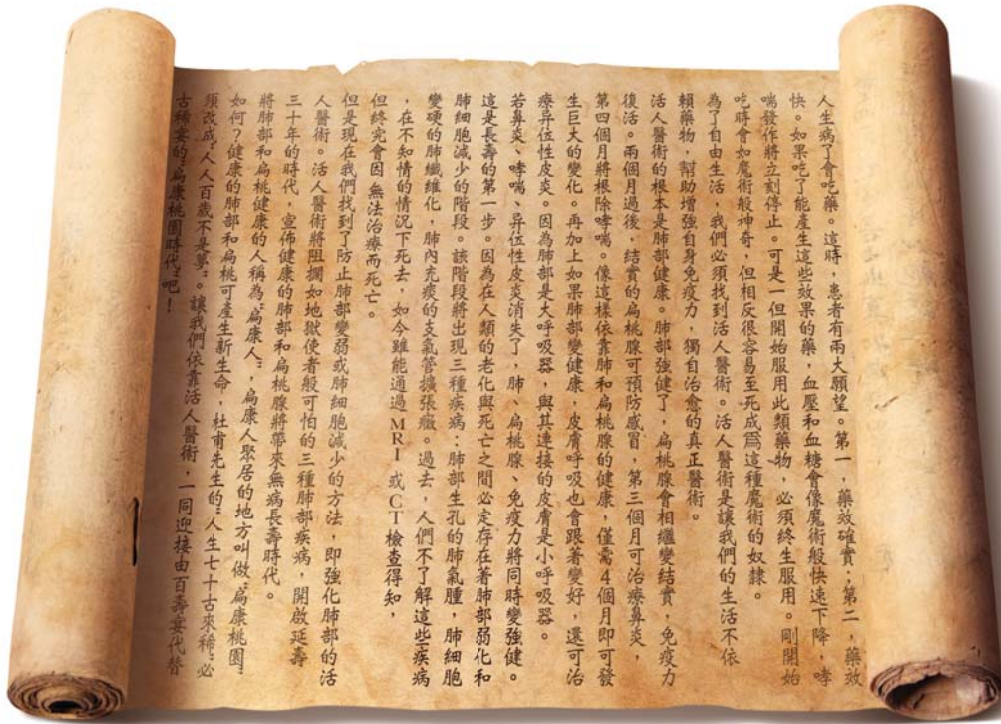 人生病了會吃藥。這時，患者有兩大願望。第一，藥效確實；第二，藥效
快。如果吃了能產生這些效果的藥，血壓和血糖會像魔術般快速下降，哮
喘發作將立刻停止。可是一但開始服用此類藥物，必須終生服用。剛開始
吃時會如魔術般神奇，但相反很容易至死成爲這種魔術的奴隸。
為了自由生活，我們必須找到活人醫術。活人醫術是讓我們的生活不依
賴藥物，幇助增強自身免疫力，獨自治愈的真正醫術。
活人醫術的根本是肺部健康。肺部強健了，扁桃腺會相繼變結實，免疫力
復活。兩個月過後，結實的扁桃腺可預防感冒，第三個月可治療鼻炎，
第四個月將根除哮喘。像這樣依靠肺和扁桃腺的健康，僅需4個月即可發
生巨大的變化。再加上如果肺部變健康，皮膚呼吸也會跟著變好，還可治
療异位性皮炎。因為肺部是大呼吸器，與其連接的皮膚是小呼吸器。
若鼻炎、哮喘、异位性皮炎消失了，肺、扁桃腺、免疫力將同時變強健。
這是長壽的第一步。因為在人類的老化與死亡之間必定存在著肺部弱化和
肺細胞減少的階段。該階段將出現三種疾病：肺部生孔的肺氣腫，肺細胞
變硬的肺纖維化，肺內充痰的支氣管擴張癥。過去，人們不了解這些疾病
，在不知情的情況下死去，如今雖能通過MRI 或CT檢查得知，
但終究會因 無法治療而死亡。
但是現在我們找到了防止肺部變弱或肺細胞減少的方法，即強化肺部的活
人醫術。活人醫術將阻攔如地獄使者般可怕的三種肺部疾病，開啟延壽
三十年的時代，宣佈健康的肺部和扁桃腺將帶來無病長壽時代。
將肺部和扁桃健康的人稱為“扁康人”，扁康人聚居的地方叫做“扁康桃園”
如何？健康的肺部和扁桃可產生新生命，杜甫先生的“人生七十古來稀”必
須改成“人人百歲不是夢”。讓我們依靠活人醫術，一同迎接由百壽宴代替
古稀宴的“扁康桃園時代”吧！